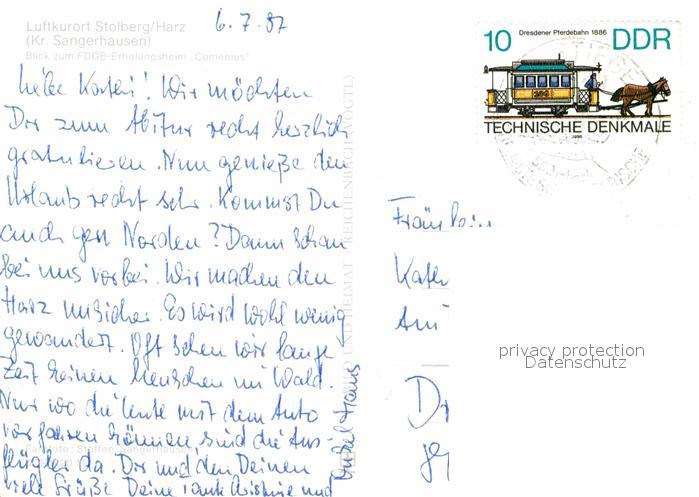 6.7.87
Luftkurort Stolberg/Harz
(Kr. Sangerhausen)
Blick zum FDGB-Erholungsheim „Comenius"
Dresdener Pferdebahn 1886
10 DDR
TECHNISCHE DENKMALE
1986
Wir möchten
Dir zum Abitur recht herzlich
gratulieren. Nun genieße den
Urlaub recht sehr. Kommst Du
auch gen Norden? Dann schau
bei uns vorbei. Wir machen den
Harz unsicher. Es wird wohl wenig
gewandert. Oft sehen wir lange
Zeit keinen Menschen im Wald.
Nur wo die Leute mit dem Auto
vorfahren können, sind die Aus-
flügler da. Dir und den Deinen
viele Grüße Deine Tante und
Onkel Hans
Fräulein
Kath
Am
Dr
privacy protection
Datenschutz